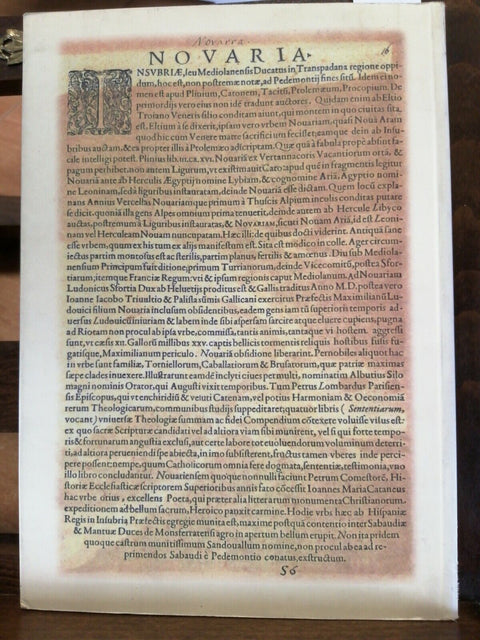 Novarra.
16
NOVARIA.
INSVBRIÆ, seu Mediolanensis Ducatus in Transpadana regione oppi-
dum, hoc est, non postremæ notæ, ad Pedemontij fines sitū. Idem ei no-
men est apud Plinium, Catonem, Tacitū, Ptolemæum, Procopium. De
primordijs vero eius non idē tradunt auctores. Quidam enim ab Elsio
Troiano Venetis filio conditam aiunt, qui montem in quo ciuitas sita
est. Elcium à se dixerit, ipsam vero vrbem Nouariam, quasi Noua Aram
quod hic cum Venere matte sacrificium fecisset, eamque dein ab Insu-
bribus auctā, & ea propter illis à Ptolemæo adscriptam. Quæ quā à fabula prope absint fa-
cile intelligi potest. Plinius lib. III. ca. XVI. Nouariā ex Vertannacoris Vacantiorum ortā, &
pagum perhibet, non autem Ligurum, vt existimauit Cato: apud quē in fragmentis legitur
Nouaria ante ab Herculis Ægyptij nomine Lybiam, & cognomine Aria, Ægyptio nomi-
ne Leoninam, sed à liguribus instauratam, deinde Nouaria esse dictam. Quem locū expla-
nans Annius Vercellas Nouariamque primum à Thuscis Alpium incolis conditas putare
se dicit. quoniā illa gens Alpes omnium prima tenuerit, deinde autem ab Hercule Libyco
auctas, postremum à Liguribus instauratas, & NOVARIAM, sicuti Nouam Ariā, id est Leoni-
nam vel Herculeam Nouam nuncupatam. Hæc illi: de quibus docti viderint. Antiquā sane
esse vrbem, quum ex his tum ex alijs manifestum est. Sita est modico in colle. Ager circum-
iectus partim montosus est ac sterilis, partim planus, fertilis & amœnus. Diu sub Mediola-
nensium Principum fuit ditione; primum Turrianorum, deinde Vicecomitū, postea Sfor-
tiarum; itemque Franciæ Regum: vti & ipsum regionis caput Mediolanum. Ad Nouariam
Ludouicus Sfortia Dux ab Heluetijs proditus est & Gallis traditus Anno M.D. postea vero
Ioanne Iacobo Triuultio & Palissa summis Gallicani exercitus Præfectis Maximilianū Lu-
douici filium Nouaria inclusum obsidentibus, eadem gens iam tū superioris temporis ad-
uersus Ludouicū iniuriam & labem inde sibi aspersam sarcire atque eluere cupiens, pugna
ad Riotam non procul ab ipsa vrbe, commissa, tantis animis, tantaque vi hostem aggressi
sunt, vt cæsis XII. Gallorū millibus XXV. captis bellicis tormentis reliquis hostibus fusis fu-
gatisque, Maximilianum periculo. Nouariā obsidione liberarint. Pernobiles aliquot hac
in vrbe sunt familiæ, Torniellorum, Caballatiorum & Brusatorum, quæ patriæ maximas
sæpe clades inuexere. Illustrarunt eamdē inclyti ciues permulti, nominatim Albutius Silo
magni nominis Orator, qui Augusti vixit temporibus. Tum Petrus Lombardus Parisien-
sis Episcopus, qui vt enchiridiū & veluti Catenam, vel potius Harmoniam & Oeconomiā
rerum Theologicarum, communibus studijs suppeditaret; quatuor libris (Sententiarum,
vocant) vniuersæ Theologiæ summam ac fidei Compendium cōtexere voluisse visus est:
ex quo sacræ Scripturæ candidati vel ad altiora viam sibi munirent, vel si qui forte tempo-
ris & fortunarum angustia exclusi, aut certe labore tot euoluendorum voluminum deterri-
ti, ad altiora perueniendi spe abiecta, in imo subsisterent, fructus tamen vberes inde perci-
pere possent: nempe, quum Catholicorum omnia fere dogmata, sententiæ, testimonia, vno
illo libro concludantur. Nouariensem quoque nonnulli faciunt Petrum Comestorē, Hi-
storiæ Ecclesiasticæ scriptorem Superioribus annis fato cōcessit Ioannes Maria Cataneus
hac vrbe ortus, excellens Poeta, qui præter alia litterarum monumenta Christianorum
expeditionem ad bellum sacrum, Heroico panxit carmine. Hodie vrbs hæc ab Hispaniæ
Regis in Insubria Præfectis egregie munita est, maxime postquā contentio inter Sabaudiæ
& Mantuæ Duces de Monsferratensi agro in apertum bellum erupit. Non ita pridem
quoque castrum munitissimum Sandouallum nomine, non procul ab ea ad re-
primendos Sabaudi è Pedemontio conatus, exstructum.
S6